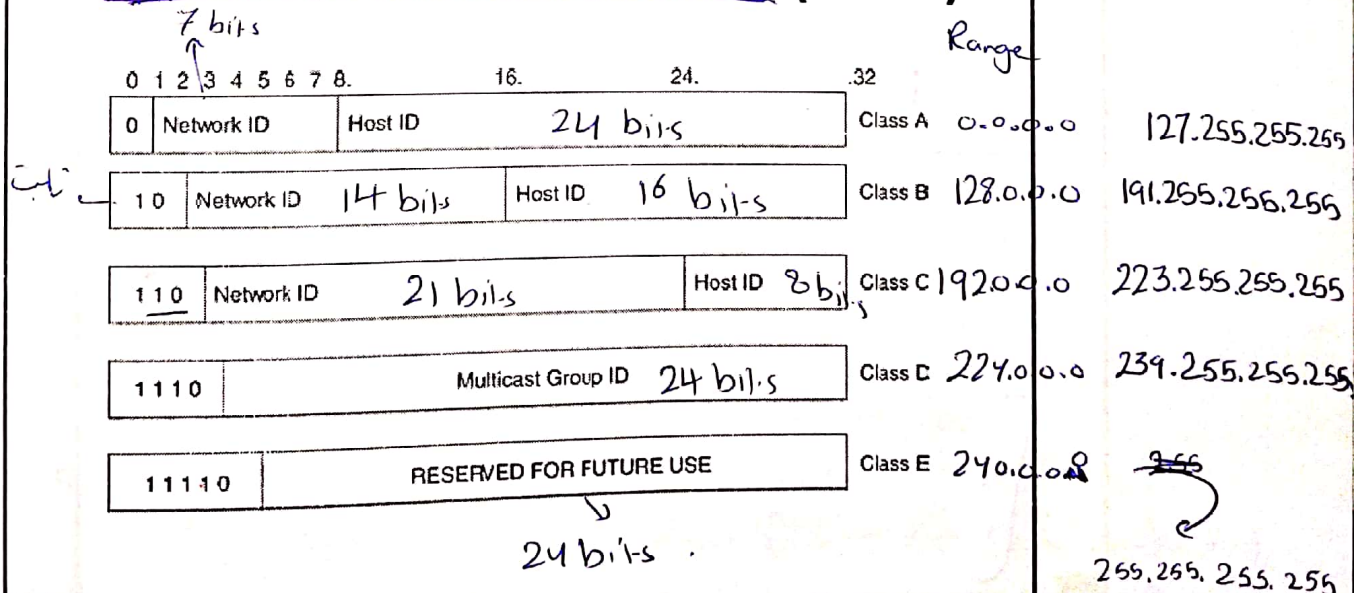 7 bits
Range
0 1 2 3 4 5 6 7 8. 16. 24. .32
0 Network ID Host ID 24 bits Class A 0.0.0.0 127.255.255.255
ثابت
10 Network ID 14 bits Host ID 16 bits Class B 128.0.0.0 191.255.255.255
110 Network ID 21 bits Host ID 8 bits Class C 192.0.0.0 223.255.255.255
1110 Multicast Group ID 24 bits Class D 224.0.0.0 239.255.255.255
11110 RESERVED FOR FUTURE USE Class E 240.0.0.0
24 bits.
255.255.255.255